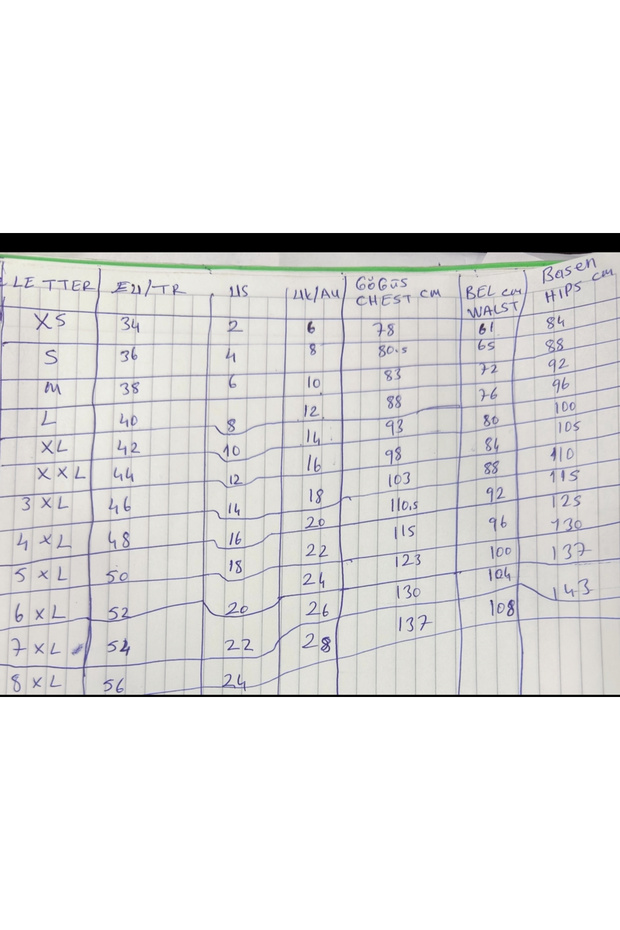 LETTER EU/TR US UK/AU GöGüS CHEST cm BEL cm WALST Basen HIPS cm
XS 34 2 6 78 61 84
S 36 4 8 80.5 65 88
M 38 6 10 83 72 92
L 40 8 12 88 76 96
XL 42 10 14 93 80 100
XXL 44 12 16 98 84 105
3XL 46 14 18 103 88 110
4XL 48 16 20 110.5 92 115
5XL 50 18 22 115 96 125
6XL 52 20 24 123 100 130
7XL 54 22 26 130 104 137
8XL 56 24 28 137 108 143